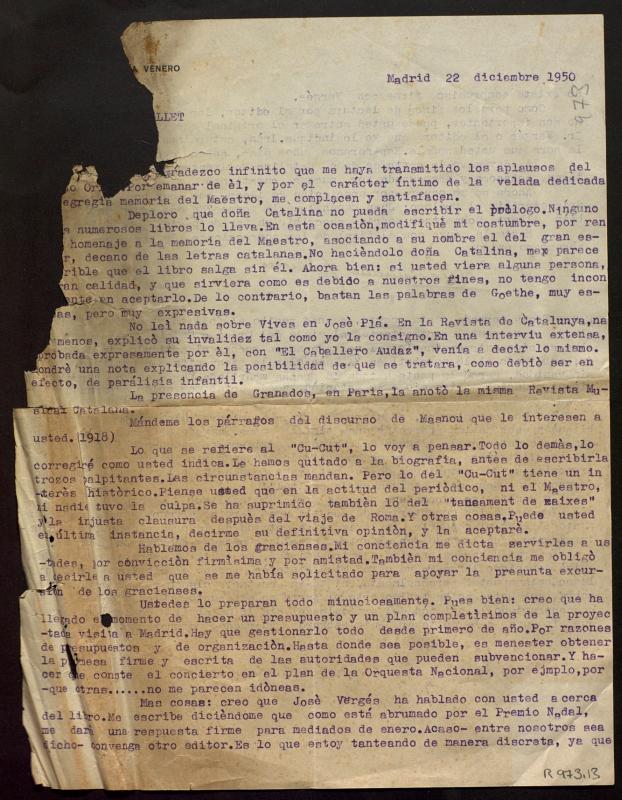 A VENERO
Madrid 22 diciembre 1950
973
LLET
gradezco infinito que me haya transmitido los aplausos del
Por emanar de èl, y por el carácter íntimo de la velada dedicada
egregia memoria del Maestro, me complacen y satisfacen.
Deploro que doña Catalina no pueda escribir el prólogo.Ninguno
numerosos libros lo lleva.En esta ocasiòn,modifiquè mi costumbre, por ren
homenaje a la memoria del Maestro, asociando a su nombre el del gran es-
r, decano de las letras catalanas.No hacièndolo doña Catalina, me parece
rible que el libro salga sin èl. Ahora bien: si usted viera alguna persona,
an calidad, y que sirviera como es debido a nuestros fines, no tengo incon
ente en aceptarlo.De lo contrario, bastan las palabras de Goethe, muy es-
as, pero muy expresivas.
No leì nada sobre Vives en Josè Plá. En la Revista de Catalunya,na
menos, explicò su invalidez tal como yo la consigno.En una interviu extensa,
probada expresamente por èl, con "El Caballero Audaz", venía a decir lo mismo.
ondrè una nota explicando la posibilidad de que se tratara, como debiò ser en
efecto, de parálisis infantil.
La presencia de Granados, en Paris,la anotò la misma Revista Mu-
sical Catalana.
Mándeme los párragos del discurso de Masnou que le interesen a
usted.(1918)
Lo que se refiere al "Cu-Cut", lo voy a pensar.Todo lo demàs,lo
corregirè como usted indica.Le hemos quitado a la biografía, antes de escribirla
trozos palpitantes.Las circunstancias mandan. Pero lo del "Cu-Cut" tiene un in
-terès històrico.Piense usted que en la actitud del periòdico, ni el Maestro,
ni nadie tuvo la culpa.Se ha suprimido tambièn lo del "tancament de caixes"
y la injusta clausura despuès del viaje de Roma.Y otras cosas.Puede usted
en última instancia, decirme su definitiva opiniòn, y la aceptarè.
Hablemos de los gracienses.Mi conciencia me dicta servirles a us
-tedes, por convicciòn firmìsima y por amistad.Tambièn mi conciencia me obligò
a decirle a usted que se me había solicitado para apoyar la presunta excur-
siòn de los gracienses.
Ustedes lo preparan todo minuciosamente. Pues bien: creo que ha
llegado el momento de hacer un presupuesto y un plan completìsimos de la proyec
-tada visita a Madrid.Hay que gestionarlo todo desde primero de año.Por razones
de presupuestos y de organizaciòn.Hasta donde sea posible, es menester obtener
la promesa firme y escrita de las autoridades que pueden subvencionar.Y ha-
cer que conste el concierto en el plan de la Orquesta Nacional, por ejmplo,por
-que otras......no me parecen idòneas.
Mas cosas: creo que Josè Vergès ha hablado con usted acerca
del libro.Me escribe dicièndome que como está abrumado por el Premio Nadal,
me dará una respuesta firme para mediados de enero.Acaso- entre nosotros sea
dicho- convenga otro editor.Es lo que estoy tanteando de manera discreta, ya que
R 973,13